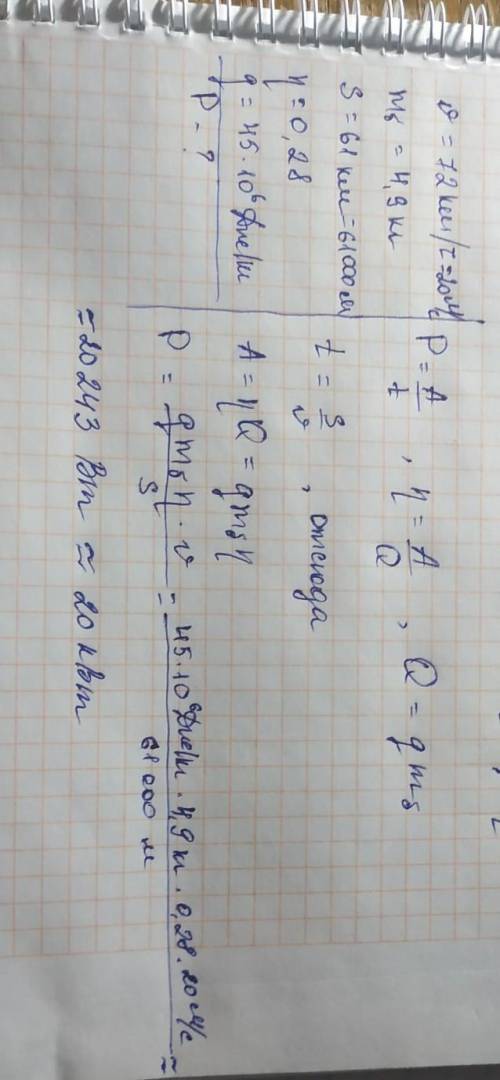 υ = 72 км/ч = 20 м/с
mδ = 4,9 кг
S = 61 км = 61000 м
η = 0,28
q = 45·10⁶ Дж/кг
P - ?
P = A/t , η = A/Q , Q = q mδ
t = S/υ , отсюда
A = ηQ = q mδ η
P = q mδ η · υ / S = 45·10⁶ Дж/кг · 4,9 кг · 0,28 · 20 м/с / 61 000 м ≈
≈ 20243 Вт ≈ 20 кВт